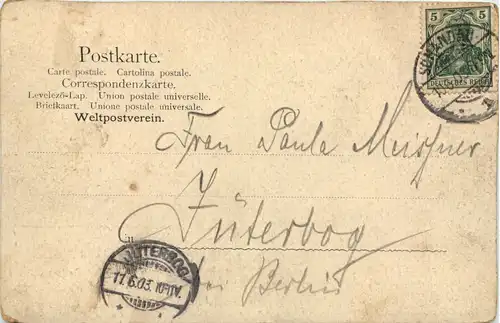 Postkarte.
Carte postale. Cartolina postale.
Correspondenzkarte.
Levelező-Lap. Union postale universelle.
Briefkaart. Unione postale universale.
Weltpostverein.
5 5
DEUTSCHES REICH
Frau Paula Meissner
Jüterbog
bei Berlin
JÜTERBOG
11.6.03.